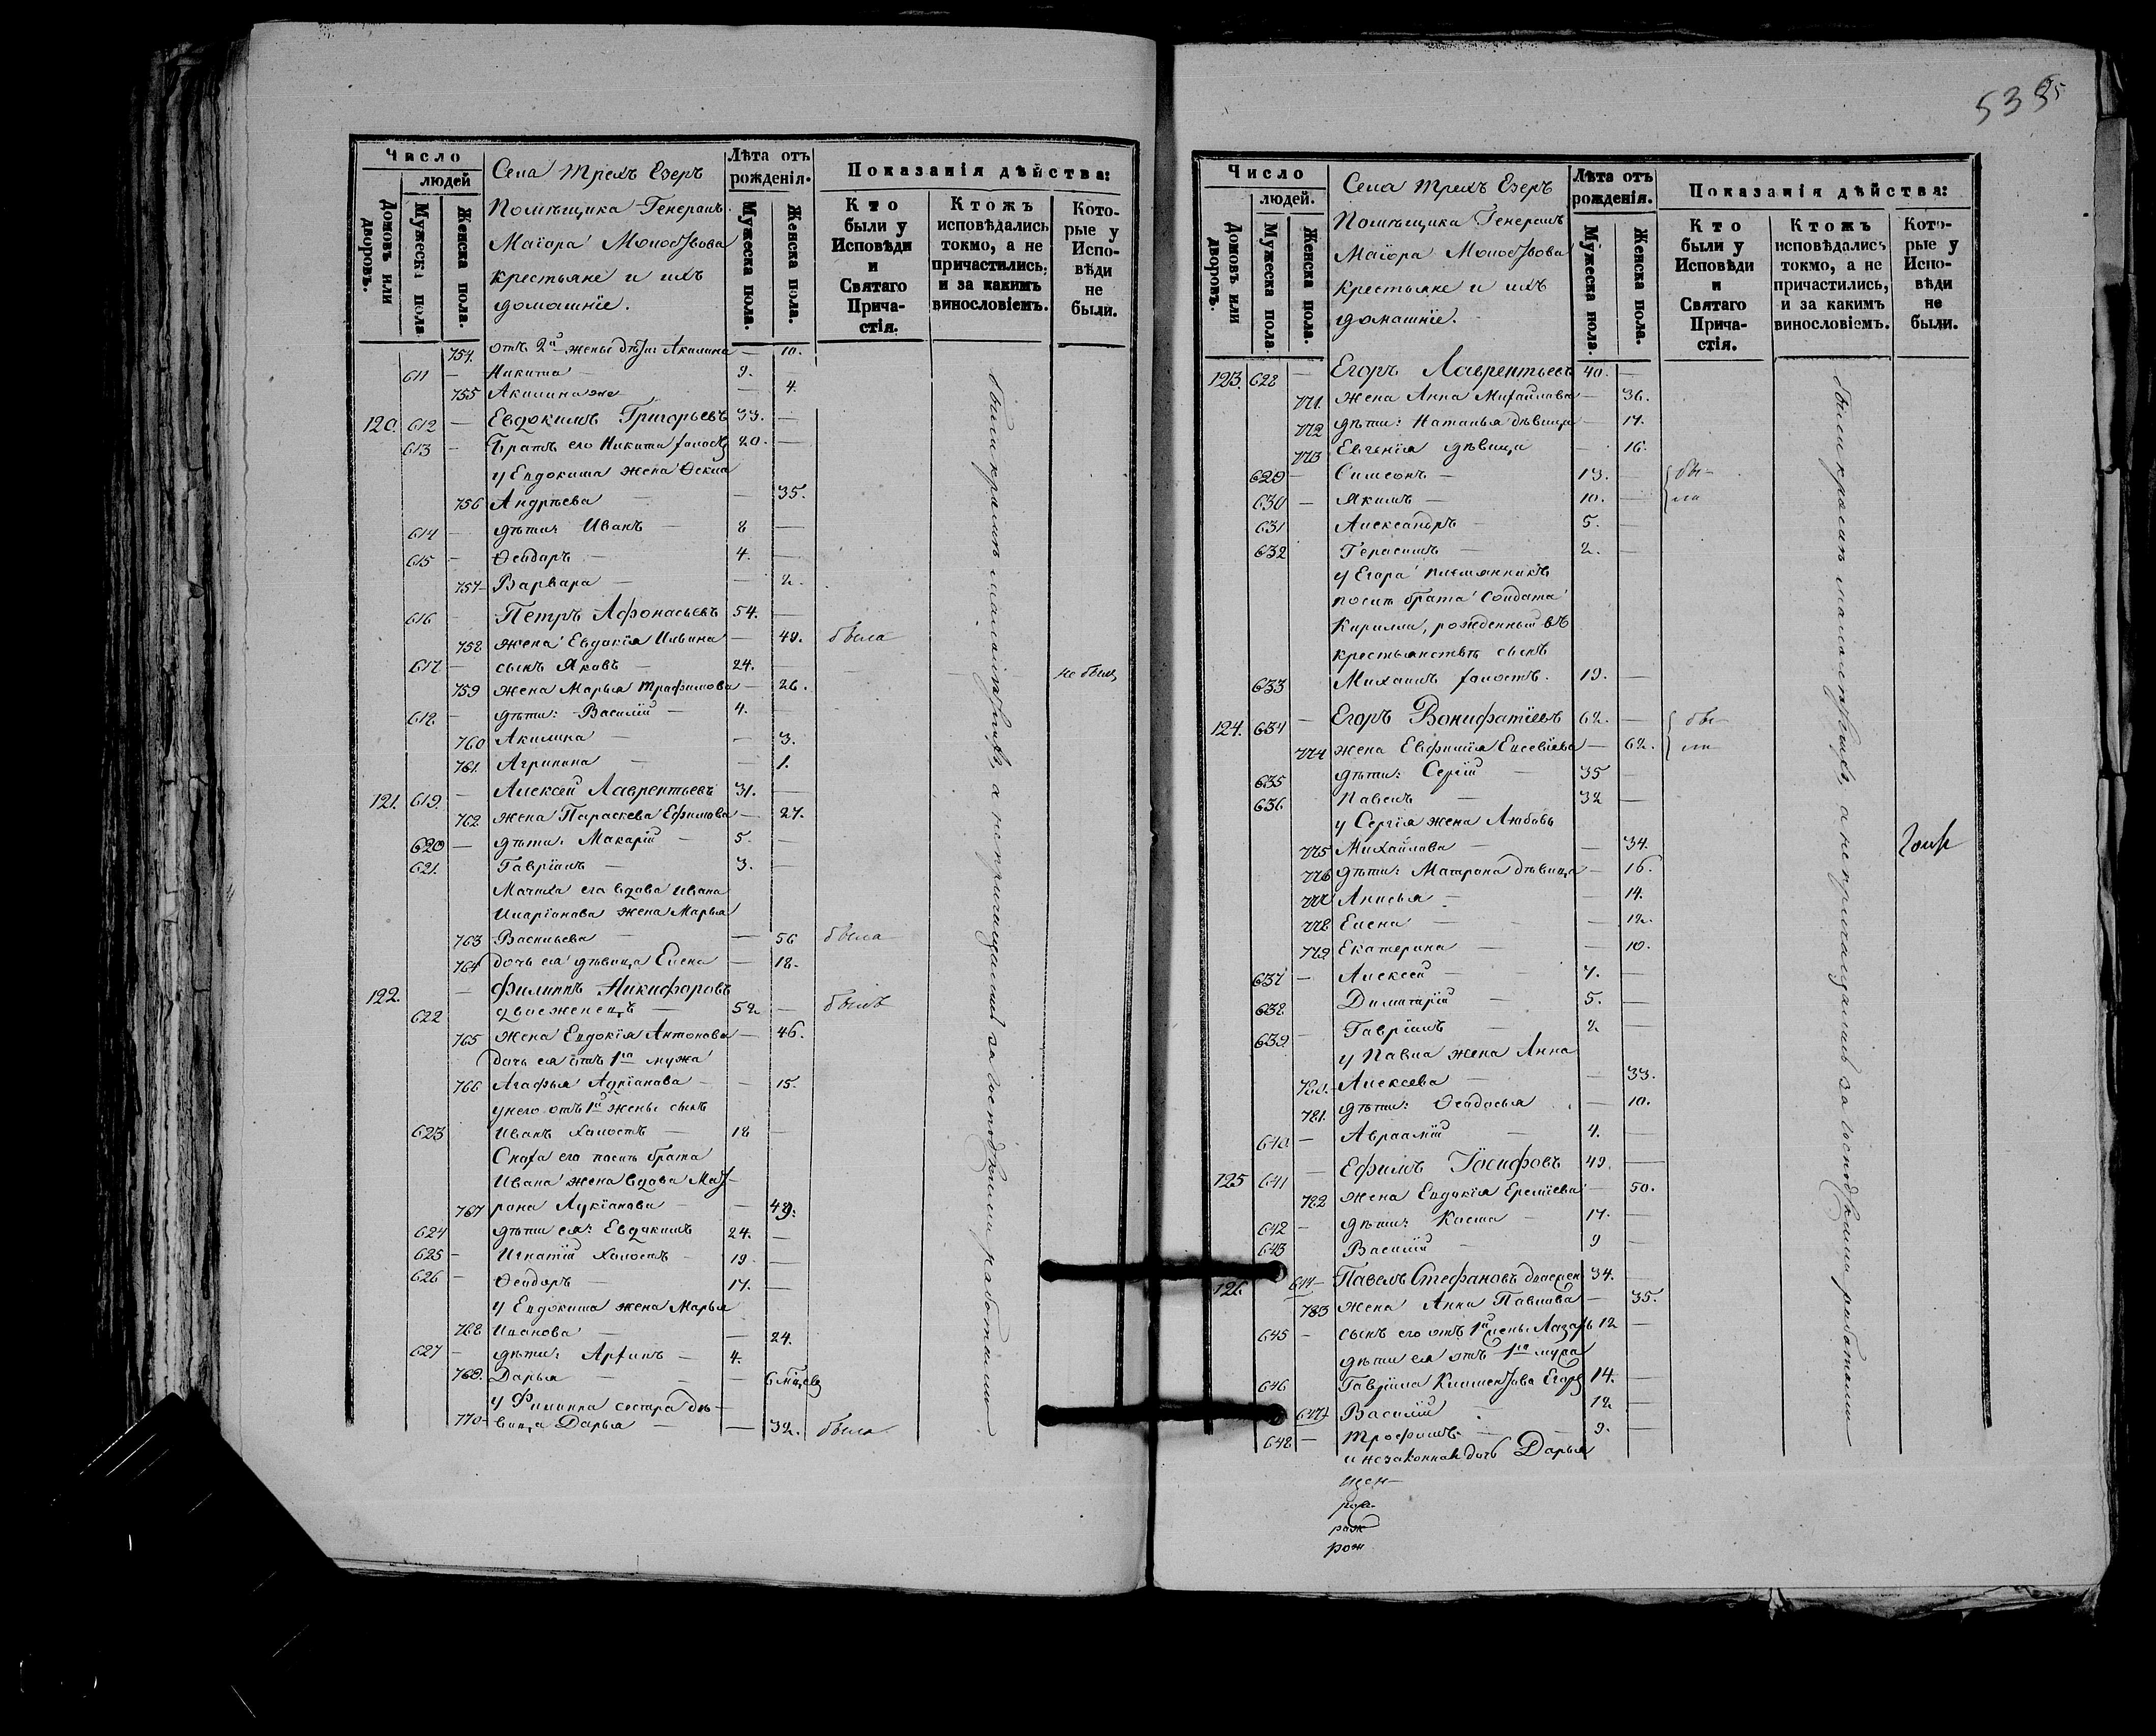 Число
людей
Домовъ или дворовъ.
Мужеска пола
Женска пола.
Села Трехъ Озеръ
Помѣщика Генералъ
Маіора Молоствова
крестьяне и ихъ
домашніе.
Лѣта отъ
рожденія.
Мужеска пола.
Женска пола.
Показанія дѣйства:
Кто
были у
Исповѣди
и
Святаго
Прича-
стія.
Ктожъ
исповѣдались
токмо, а не
причастились,
и за какимъ
винословіемъ.
Кото-
рые у
Испо-
вѣди
не
были.
754. отъ 2й жены дѣти: Акилина — 10.
611 — Никита — 9. —
755 Акилина же — 4.
120. 612 — Евдокимъ Григорьевъ 33. —
613 — Братъ его Никита холостъ 20. —
у Евдокима жена Ѳекла
756 Андрѣева — 35.
614 — дѣти: Иванъ — 8 —
615 — Ѳеодоръ — 4. —
757 — Варвара — 2.
616 — Петръ Афонасьевъ 54. —
758 жена Евдокія Ильина — 40. была
617 — сынъ Яковъ — 24. —
759 жена Марья Трофимова — 26. не были
618 — дѣти: Василій — 4. —
760 Акилина — 3.
761. Агрипина — 1.
121. 619. — Алексѣй Лаврентьевъ 31. —
762 жена Параскева Ефимова — 27.
620 — дѣти: Макарій — 5. —
621. Гавріилъ — 3. —
Мачиха его вдова Ивана
Иларіонова жена Марья
763 Васильева — 56 была
764 дочь ея дѣвица Елена — 18.
122. — Филиппъ Никифоровъ
622 двоеженецъ — 52 — былъ
765 жена Евдокія Антонова — 46.
дочь ея отъ 1го мужа
766 Агафья Адріанова — 15.
у него отъ 1й жены сынъ
623 Иванъ холостъ — 18 —
Сноха его послѣ брата
Ивана жена вдова Мат-
767 рона Лукіанова — 49.
624 дѣти ея: Евдокимъ 24. —
625 — Игнатій холостъ — 19. —
626 — Ѳеодоръ — 17. —
у Евдокима жена Марья
768 Иванова — 24.
627 — дѣти: Архипъ — 4.
769. Дарья — 6 мѣсяцевъ
у Филиппа сестра дѣ-
770 — вица Дарья — 32. была
были кромѣ малолѣтнихъ, а не причащались за господскими работами
535
Число
людей.
Домовъ или дворовъ.
Мужеска пола.
Женска пола.
Села Трехъ Озеръ
Помѣщика Генералъ
Маіора Молоствова
крестьяне и ихъ
домашніе.
Лѣта отъ
рожденія.
Мужеска пола.
Женска пола.
Показанія дѣйства:
Кто
были у
Исповѣди
и
Святаго
Прича-
стія.
Ктожъ
исповѣдались
токмо, а не
причастились,
и за какимъ
винословіемъ.
Кото-
рые у
Испо-
вѣди
не
были.
123. 628 — Егоръ Лаврентьевъ 40. —
771. жена Анна Михайлова — 36.
772 дѣти: Наталья дѣвица — 17.
773 Евгенія дѣвица — 16.
629 — Симеонъ — 13. — бы-
630 — Якимъ — 10. — ли
631 Александръ — 5. —
632 Герасимъ — 2. —
у Егора племянникъ
послѣ брата солдата
Кирилла, рожденный въ
крестьянствѣ сынъ
633 Михаилъ холостъ. 19. —
124. 634 — Егоръ Вонифатіевъ 62. — бы-
774 жена Евфимія Евсевіева — 62. ли
635 дѣти: Сергій — 35 —
636 Павелъ — 32 —
у Сергія жена Любовь
775 Михайлова — 34.
776 дѣти: Матрона дѣвица — 16.
777 Анисья — 14.
778 Елена — 12.
779 Екатерина — 10.
637 — Алексѣй — 7. —
638 Димитрій — 5. —
639 — Гавріилъ — 2 —
у Павла жена Анна
780. Алексеева — 33.
781. дѣти: Ѳеодосья — 10.
640 — Авраамій — 4. —
125 641 — Ефимъ Іосифовъ 49. —
782 жена Евдокія Еремѣева — 50.
642 — дѣти: Косма — 17. —
643 Василій — 9 —
126. 644 — Павелъ Стефановъ двоежен 34. —
783 жена Анна Павлова — 35.
645 — сынъ его отъ 1й жены Лазарь 12 —
дѣти ея отъ 1го мужа
646 Гавріила Климентова Егоръ 14. —
647 Василій — 12 —
648 — Трофимъ — 9. —
и незаконная дочь Дарья
рож
были кромѣ малолѣтнихъ, а не причащались за господскими работами